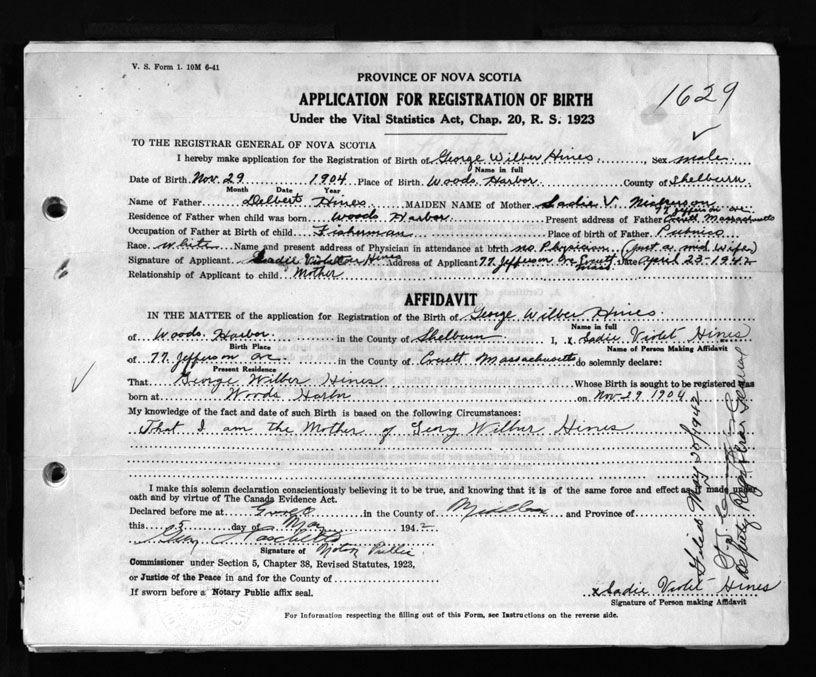 V. S. Form 1. 10M 6-41
PROVINCE OF NOVA SCOTIA
1629
APPLICATION FOR REGISTRATION OF BIRTH
Under the Vital Statistics Act, Chap. 20, R. S. 1923
TO THE REGISTRAR GENERAL OF NOVA SCOTIA
I hereby make application for the Registration of Birth of George Wilber Hines Sex male
Name in full
Date of Birth Nov. 29 1904 Place of Birth Woods Harbor County of Shelburn
Month Date Year
Name of Father Delbert Hines MAIDEN NAME of Mother Sadie V.
77 Jefferson ave.
Residence of Father when child was born Woods Harbor Present address of Father Massachusetts
Occupation of Father at Birth of child Fisherman Place of birth of Father Pubnico
Race White Name and present address of Physician in attendance at birth no Physician (just a mid wife)
Signature of Applicant Sadie Violet Hines Address of Applicant 77 Jefferson Ave Mass. Date April 23-1942
Relationship of Applicant to child Mother
AFFIDAVIT
IN THE MATTER of the application for Registration of the Birth of George Wilber Hines
Name in full
of Woods Harbor in the County of Shelburn I, x Sadie Violet Hines
Birth Place Name of Person Making Affidavit
of 77 Jefferson ave in the County of Massachusetts do solemnly declare:
Present Residence
That George Wilber Hines Whose Birth is sought to be registered was
born at Woods Harbor on Nov-29 1904
My knowledge of the fact and date of such Birth is based on the following Circumstances:
That I am the Mother of Wilbur Hines
I make this solemn declaration conscientiously believing it to be true, and knowing that it is of the same force and effect as if made under
oath and by virtue of The Canada Evidence Act.
Declared before me at in the County of and Province of
this 5 day of May 1942
Signature of Notary Public
Commissioner under Section 5, Chapter 38, Revised Statutes, 1923,
or Justice of the Peace in and for the County of
If sworn before a Notary Public affix seal.
x Sadie Violet Hines
Signature of Person making Affidavit
For Information respecting the filling out of this Form, see Instructions on the reverse side.
Filed May 20/1942
Deputy Registrar General